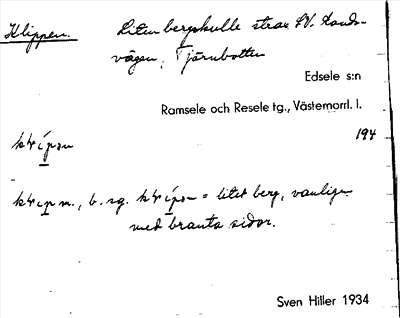 Klippen.
Liten bergskulle strax S.V. lands-
vägen, Tjärnbotten
Edsele s:n
Ramsele och Resele tg., Västernorrl. l.
194
m., b. sg. = litet berg, vanligen
med branta sidor.
Sven Hiller 1934